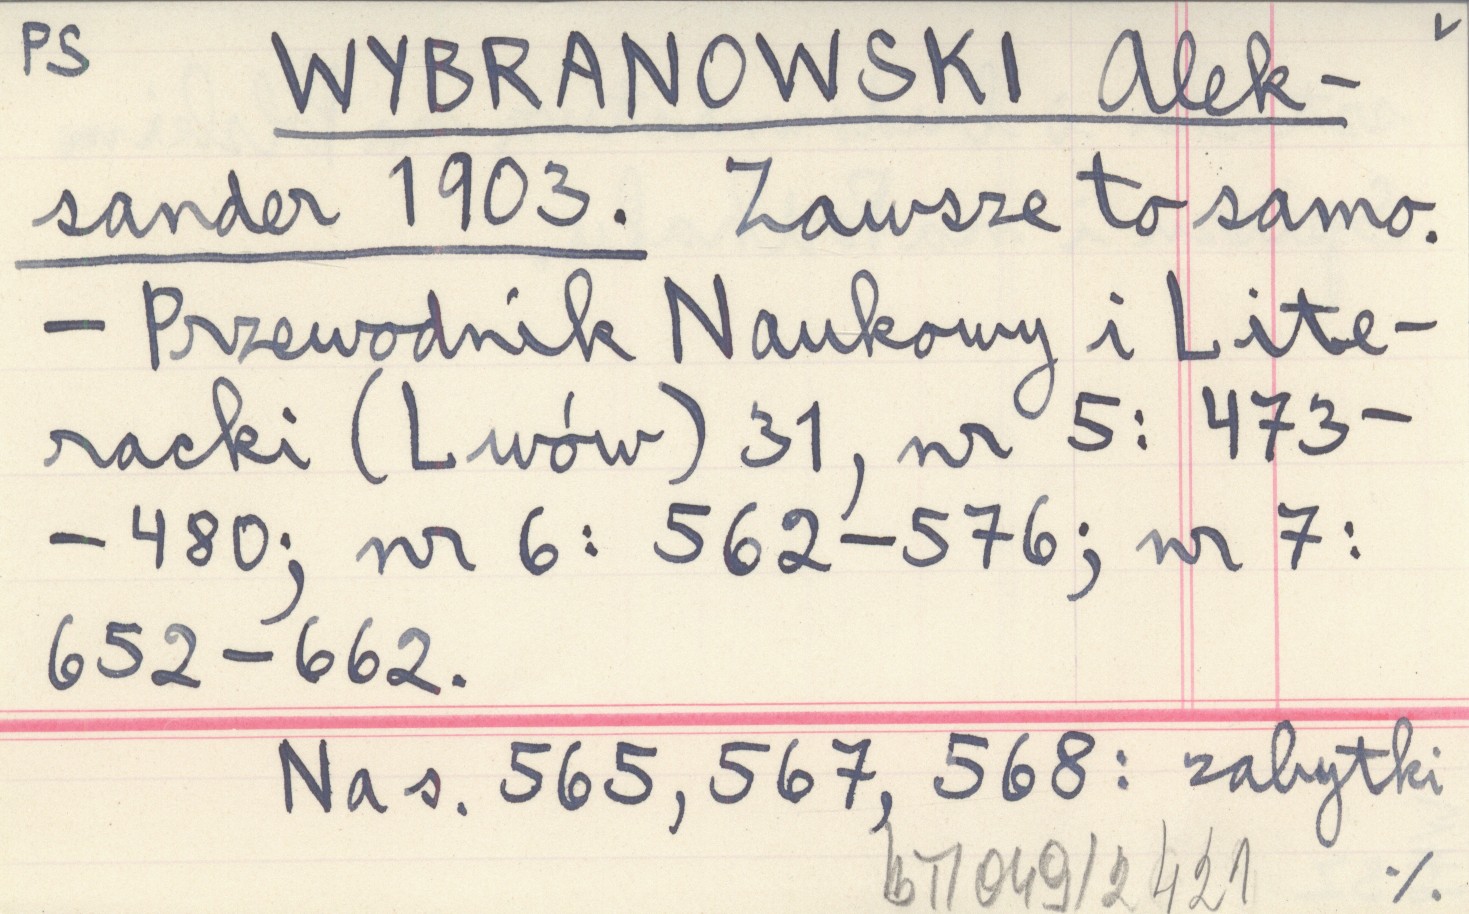 PS WYBRANOWSKI Alek-
sander 1903. Zawsze to samo.
– Przewodnik Naukowy i Lite-
racki (Lwów) 31, nr 5: 473–
– 480; nr 6: 562–576; nr 7:
652–662.
Na s. 565, 567, 568: zabytki
049/2421 ·/.